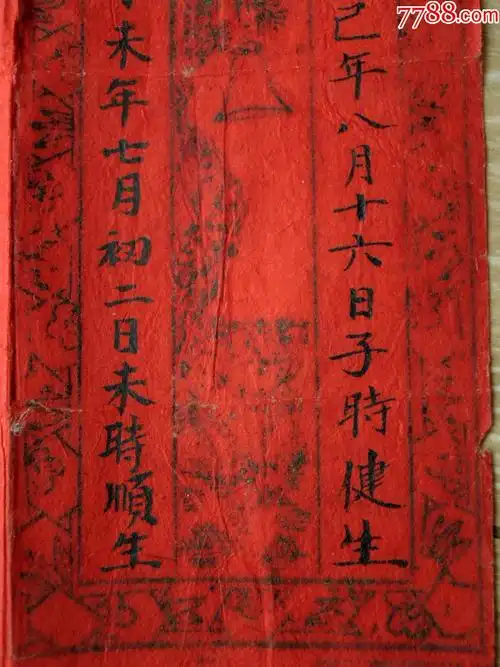 7788.com
己年八月十六日子時健生
未年七月初二日未時順生